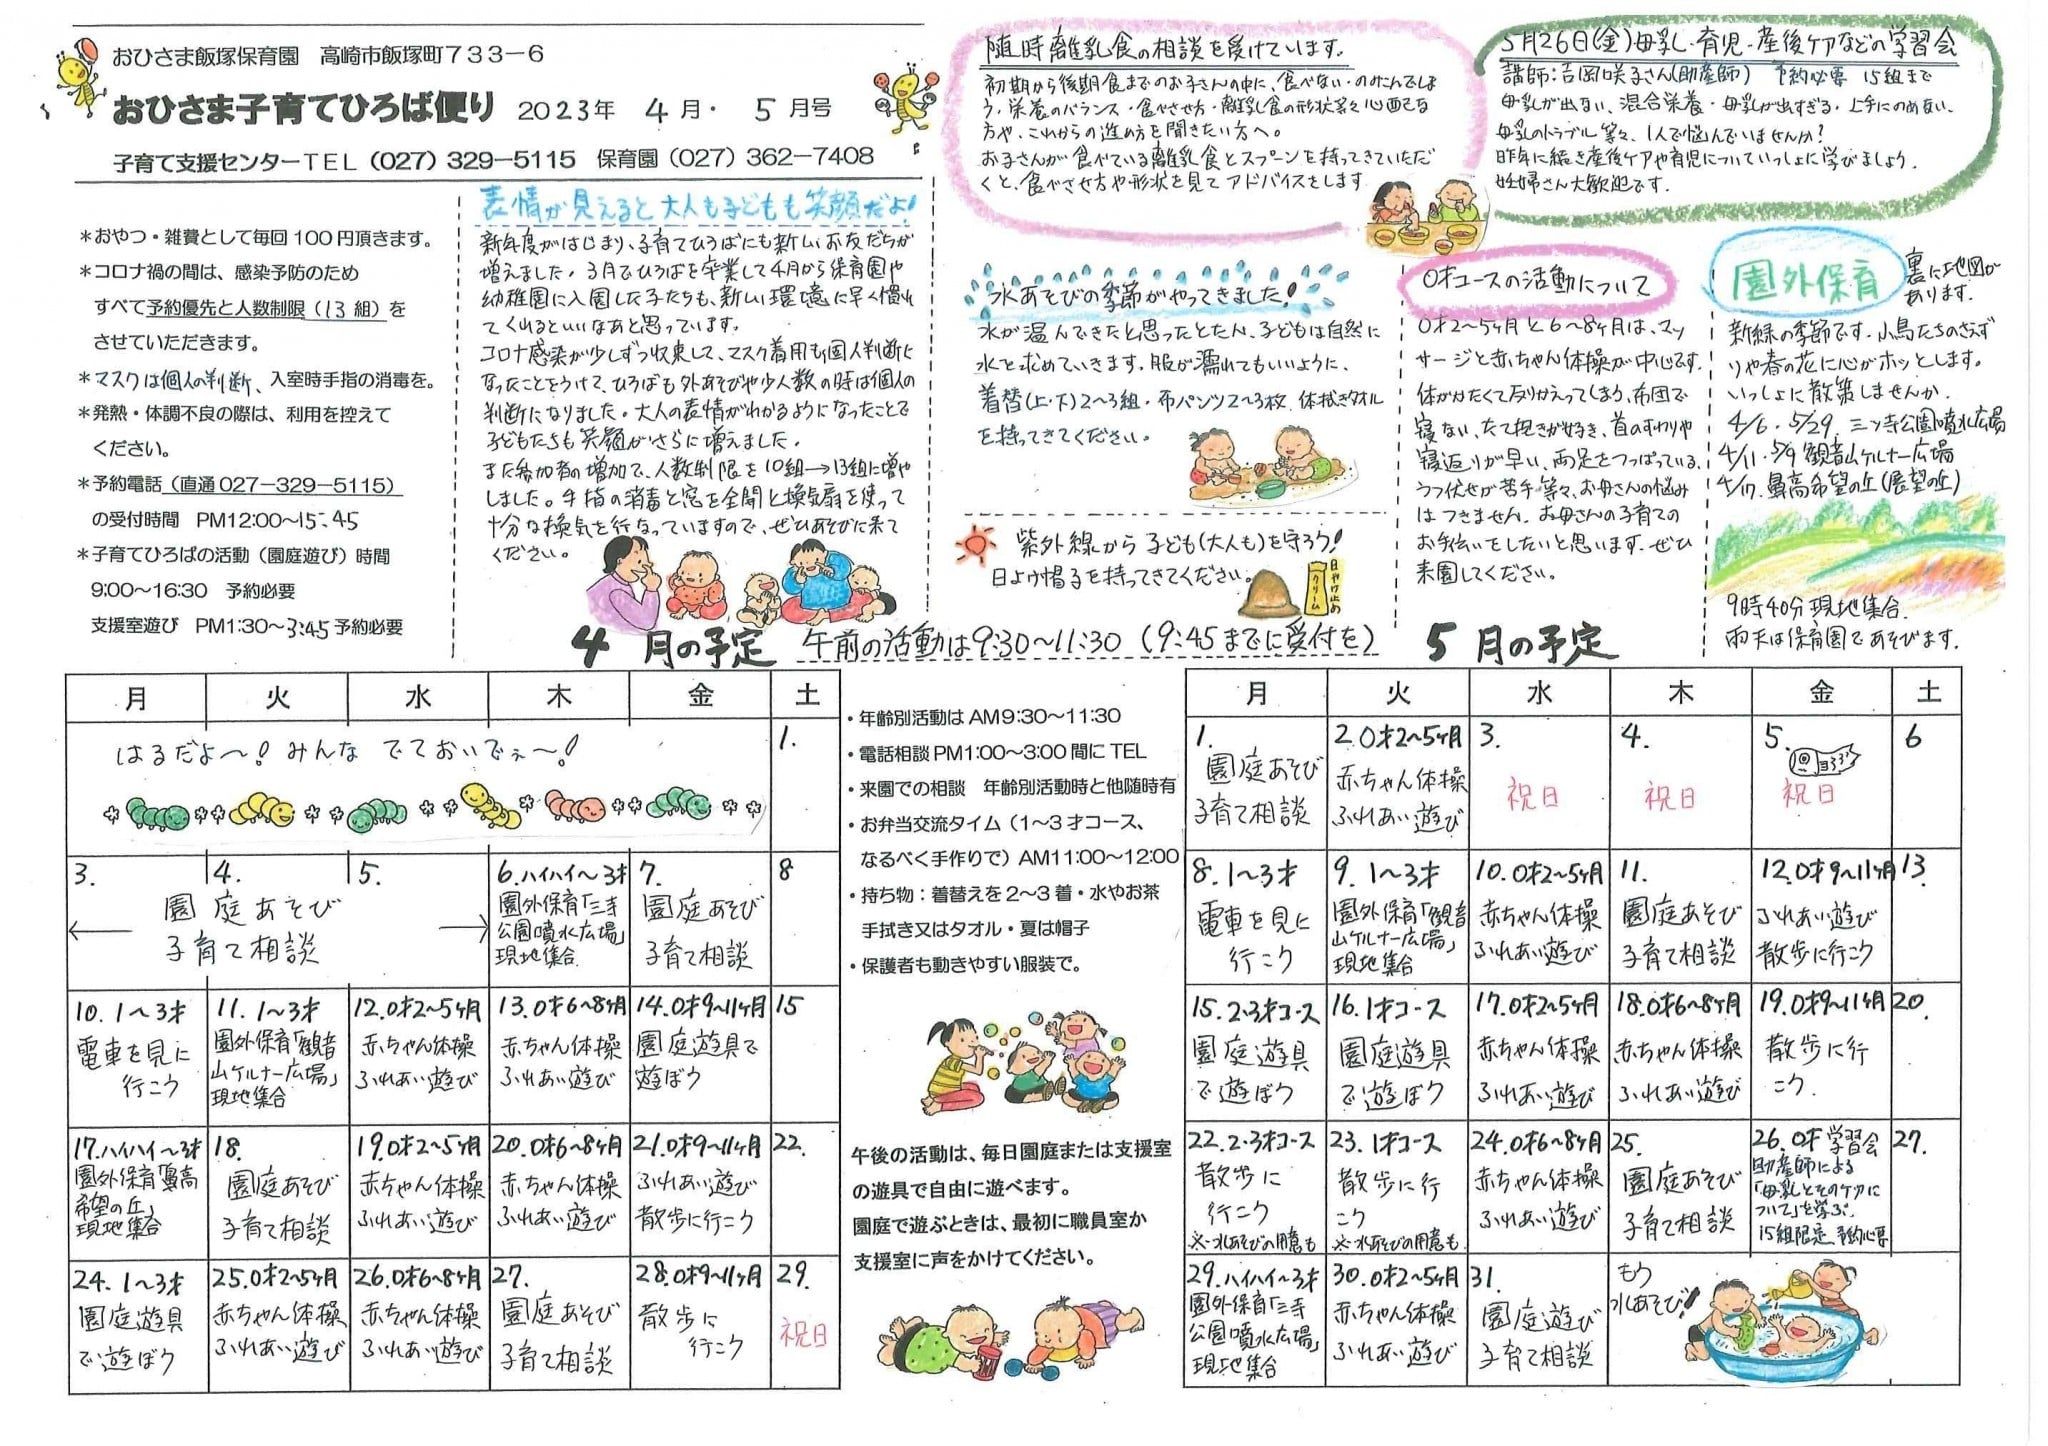 おひさま飯塚保育園　高崎市飯塚町７３３－６
おひさま子育てひろば便り　2023年　4月・　5月号
子育て支援センターTEL（027）329－5115　保育園（027）362－7408
＊おやつ・雑費として毎回100円頂きます。
＊コロナ禍の間は、感染予防のため
すべて予約優先と人数制限（13組）を
させていただきます。
＊マスクは個人の判断、入室時手指の消毒を。
＊発熱・体調不良の際は、利用を控えて
ください。
＊予約電話（直通027－329－5115）
の受付時間　PM12:00～15:45
＊子育てひろばの活動（園庭遊び）時間
9:00～16:30　予約必要
支援室遊び　PM1:30～3:45予約必要
表情が見えると大人も子どもも笑顔だよ！
新年度がはじまり、子育てひろばにも新しいお友だちが
増えました。3月でひろばを卒業して4月から保育園や
幼稚園に入園した子たちも、新しい環境に早く慣れ
てくれるといいなあと思っています。
コロナ感染が少しずつ収束して、マスク着用も個人判断に
なったことをうけて、ひろばも外あそびや少人数の時は個人の
判断になりました。大人の表情がわかるようになったことで
子どもたちも笑顔がさらに増えました。
また参加者の増加で、人数制限を10組→13組に増や
しました。手指の消毒と窓を全開と換気扇を使って
十分な換気を行なっていますので、ぜひあそびに来て
ください。
随時離乳食の相談を受けています。
初期から後期食までのお子さんの中に、食べない・のみこんでしま
う、栄養のバランス・食べさせ方・離乳食の形状等々心配な
方や、これからの進め方を聞きたい方へ。
お子さんが食べている離乳食とスプーンを持ってきていただ
くと、食べさせ方や形状を見てアドバイスをします
5月26日（金）母乳・育児・産後ケアなどの学習会
講師：吉岡咲子さん（助産師）　予約必要　15組まで
母乳が出ない、混合栄養・母乳が出すぎる・上手にのめない、
母乳のトラブル等々、1人で悩んでいませんか？
昨年に続き産後ケアや育児についていっしょに学びましょう。
妊婦さん大歓迎です。
水あそびの季節がやってきました！
水が温んできたと思ったとたん、子どもは自然に
水を求めていきます。服が濡れてもいいように、
着替（上・下）2～3組・布パンツ2～3枚、体拭きタオル
を持ってきてください。
紫外線から子ども（大人も）を守ろう！
日よけ帽子を持ってきてください。
日やけ止めクリーム
0才コースの活動について
0才2～5ヶ月と6～8ヶ月は、マッ
サージと赤ちゃん体操が中心です。
体がかたくて反りかえってしまう、布団で
寝ない、たて抱きが好き、首のすわりや
寝返りが早い、両足をつっぱっている、
うつ伏せが苦手等々、お母さんの悩み
はつきません。お母さんの子育ての
お手伝いをしたいと思います。ぜひ
来園してください。
園外保育　裏に地図が
あります。
新緑の季節です。小鳥たちのさえず
りや春の花に心がホッとします。
いっしょに散策しませんか。
4/6・5/29 三ツ寺公園噴水広場
4/11・5/9 観音山ケルナー広場
4/17 最高希望の丘（展望の丘）
9時40分現地集合
雨天は保育園であそびます。
4　月の予定　午前の活動は9:30～11:30（9:45までに受付を）　5　月の予定
月　火　水　木　金　土
はるだよ～！みんな でておいでぇ～！
1.
3.　4.　5.
園庭あそび
子育て相談
6.ハイハイ～3才
園外保育「三寺
公園噴水広場」
現地集合
7.
園庭あそび
子育て相談
8
10. 1～3才
電車を見に
行こう
11. 1～3才
園外保育「観音
山ケルナー広場」
現地集合
12.0才2～5ヶ月
赤ちゃん体操
ふれあい遊び
13.0才6～8ヶ月
赤ちゃん体操
ふれあい遊び
14.0才9～11ヶ月
園庭遊具で
遊ぼう
15
17.ハイハイ～3才
園外保育「最高
希望の丘」
現地集合
18.
園庭あそび
子育て相談
19.0才2～5ヶ月
赤ちゃん体操
ふれあい遊び
20.0才6～8ヶ月
赤ちゃん体操
ふれあい遊び
21.0才9～11ヶ月
ふれあい遊び
散歩に行こう
22.
24. 1～3才
園庭遊具
で遊ぼう
25.0才2～5ヶ月
赤ちゃん体操
ふれあい遊び
26.0才6～8ヶ月
赤ちゃん体操
ふれあい遊び
27.
園庭あそび
子育て相談
28.0才9～11ヶ月
散歩に
行こう
29.
祝日
・年齢別活動はAM9:30～11:30
・電話相談PM1:00～3:00間にTEL
・来園での相談　年齢別活動時と他随時有
・お弁当交流タイム（1～3才コース、
なるべく手作りで）AM11:00～12:00
・持ち物：着替えを2～3着・水やお茶
手拭き又はタオル・夏は帽子
・保護者も動きやすい服装で。
午後の活動は、毎日園庭または支援室
の遊具で自由に遊べます。
園庭で遊ぶときは、最初に職員室か
支援室に声をかけてください。
月　火　水　木　金　土
1.
園庭あそび
子育て相談
2.0才2～5ヶ月
赤ちゃん体操
ふれあい遊び
3.
祝日
4.
祝日
5.
祝日
6
8. 1～3才
電車を見に
行こう
9. 1～3才
園外保育「観音
山ケルナー広場」
現地集合
10.0才2～5ヶ月
赤ちゃん体操
ふれあい遊び
11.
園庭あそび
子育て相談
12.0才9～11ヶ月
ふれあい遊び
散歩に行こう
13.
15.2・3才コース
園庭遊具
で遊ぼう
16.1才コース
園庭遊具
で遊ぼう
17.0才2～5ヶ月
赤ちゃん体操
ふれあい遊び
18.0才6～8ヶ月
赤ちゃん体操
ふれあい遊び
19.0才9～11ヶ月
散歩に行
こう
20.
22.2・3才コース
散歩に
行こう
※水あそびの用意も
23.1才コース
散歩に行
こう
※水あそびの用意も
24.0才6～8ヶ月
赤ちゃん体操
ふれあい遊び
25.
園庭あそび
子育て相談
26.0才 学習会
助産師による
「母乳とそのケアに
ついて」を学ぶ
15組限定 予約必要
27.
29.ハイハイ～3才
園外保育「三寺
公園噴水広場」
現地集合
30.0才2～5ヶ月
赤ちゃん体操
ふれあい遊び
31.
園庭遊び
子育て相談
もう
水あそび！